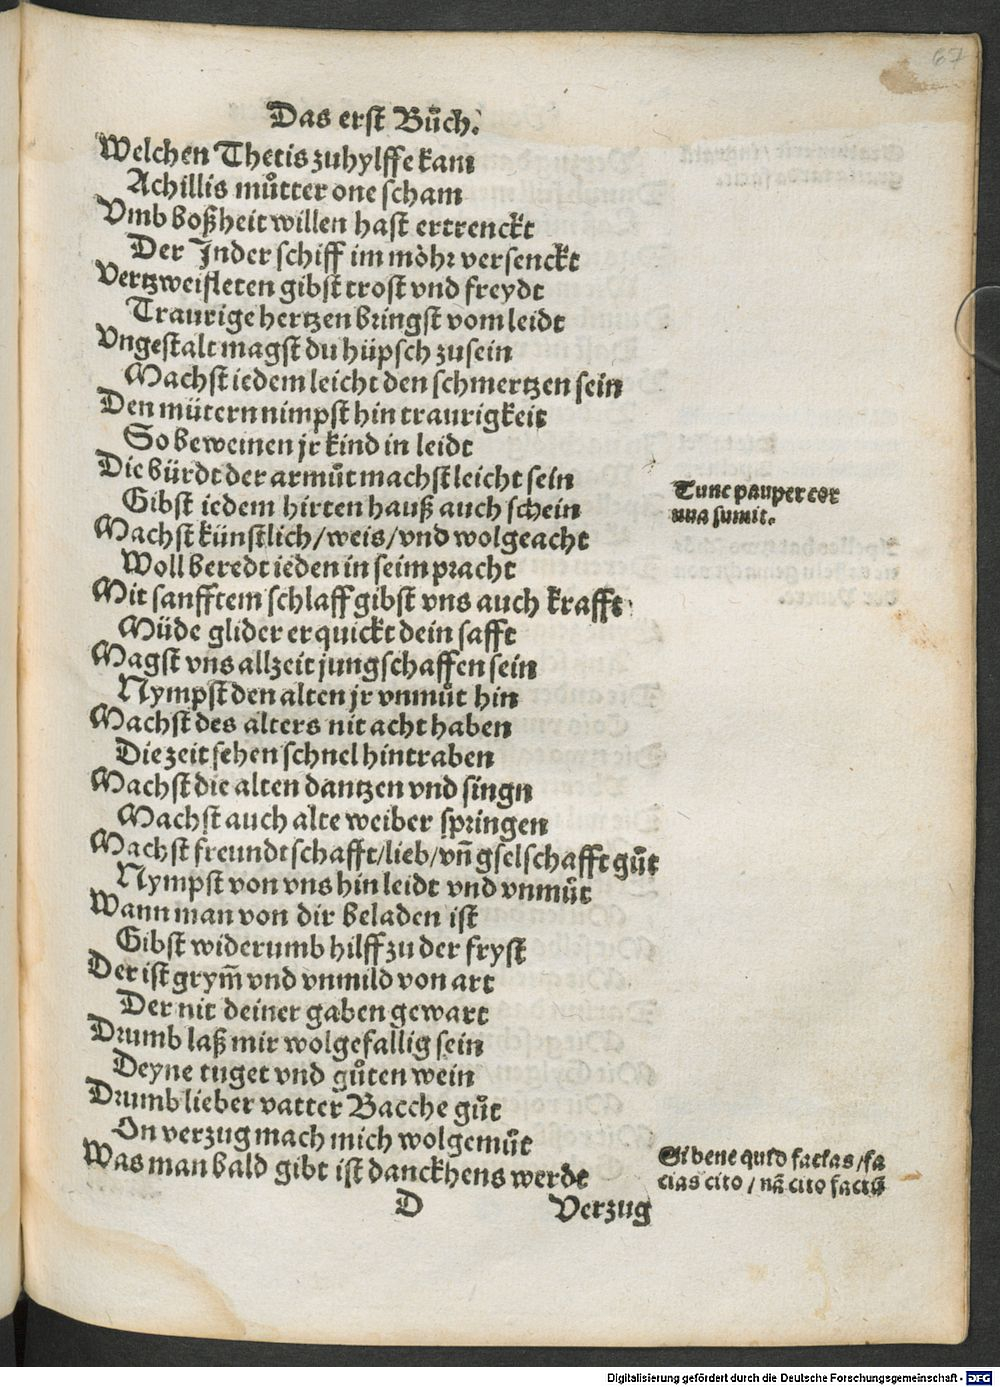 67
Das erst Bůch.
Welchen Thetis zuhylffe kam
Achillis můtter one scham
Vmb boßheit willen hast ertrenckt
Der Jnder schiff im möhr versenckt
Vertzweifleten gibst trost vnd freydt
Traurige hertzen bringst vom leidt
Vngestalt magst du hüpsch zusein
Machst iedem leicht den schmertzen sein
Den mütern nimpst hin traurigkeit
So beweinen jr kind in leidt
Die bürdt der armůt machst leicht sein
Gibst iedem hirten hauß auch schein
Machst künstlich/weis/vnd wolgeacht
Woll beredt ieden in seim pracht
Mit sanfftem schlaff gibst vns auch krafft
Müde glider erquickt dein safft
Magst vns allzeit jung schaffen sein
Nympst den alten jr vnmůt hin
Machst des alters nit acht haben
Die zeit sehen schnel hintraben
Machst die alten dantzen vnd singn
Machst auch alte weiber springen
Machst freundtschafft/lieb/vñ gselschafft gůt
Nympst von vns hin leidt vnd vnmůt
Wann man von dir beladen ist
Gibst widerumb hilff zu der fryst
Der ist grym̃ vnd vnmild von art
Der nit deiner gaben gewart
Drumb laß mir wolgefallig sein
Deyne tuget vnd gůten wein
Drumb lieber vatter Bacche gůt
On verzug mach mich wolgemůt
Was man bald gibt ist danckhens werdt
D Verzug
Tunc pauper cor
nua sumit.
Si bene quid facias/fa
cias cito/nã cito factũ
Digitalisierung gefördert durch die Deutsche Forschungsgemeinschaft - DFG